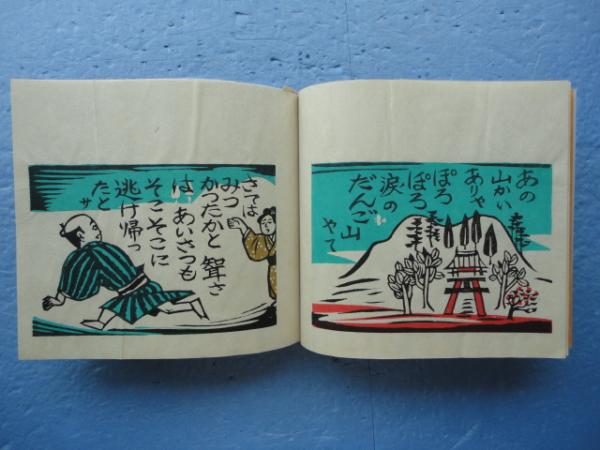 あの
山かい
ありゃ
ぽろ
ぽろ
涙の
だんご山
やて
さては
みつ
かつたかと 聟さ
は、あいさつも
そこそこに
逃げ帰っ
たと
サ